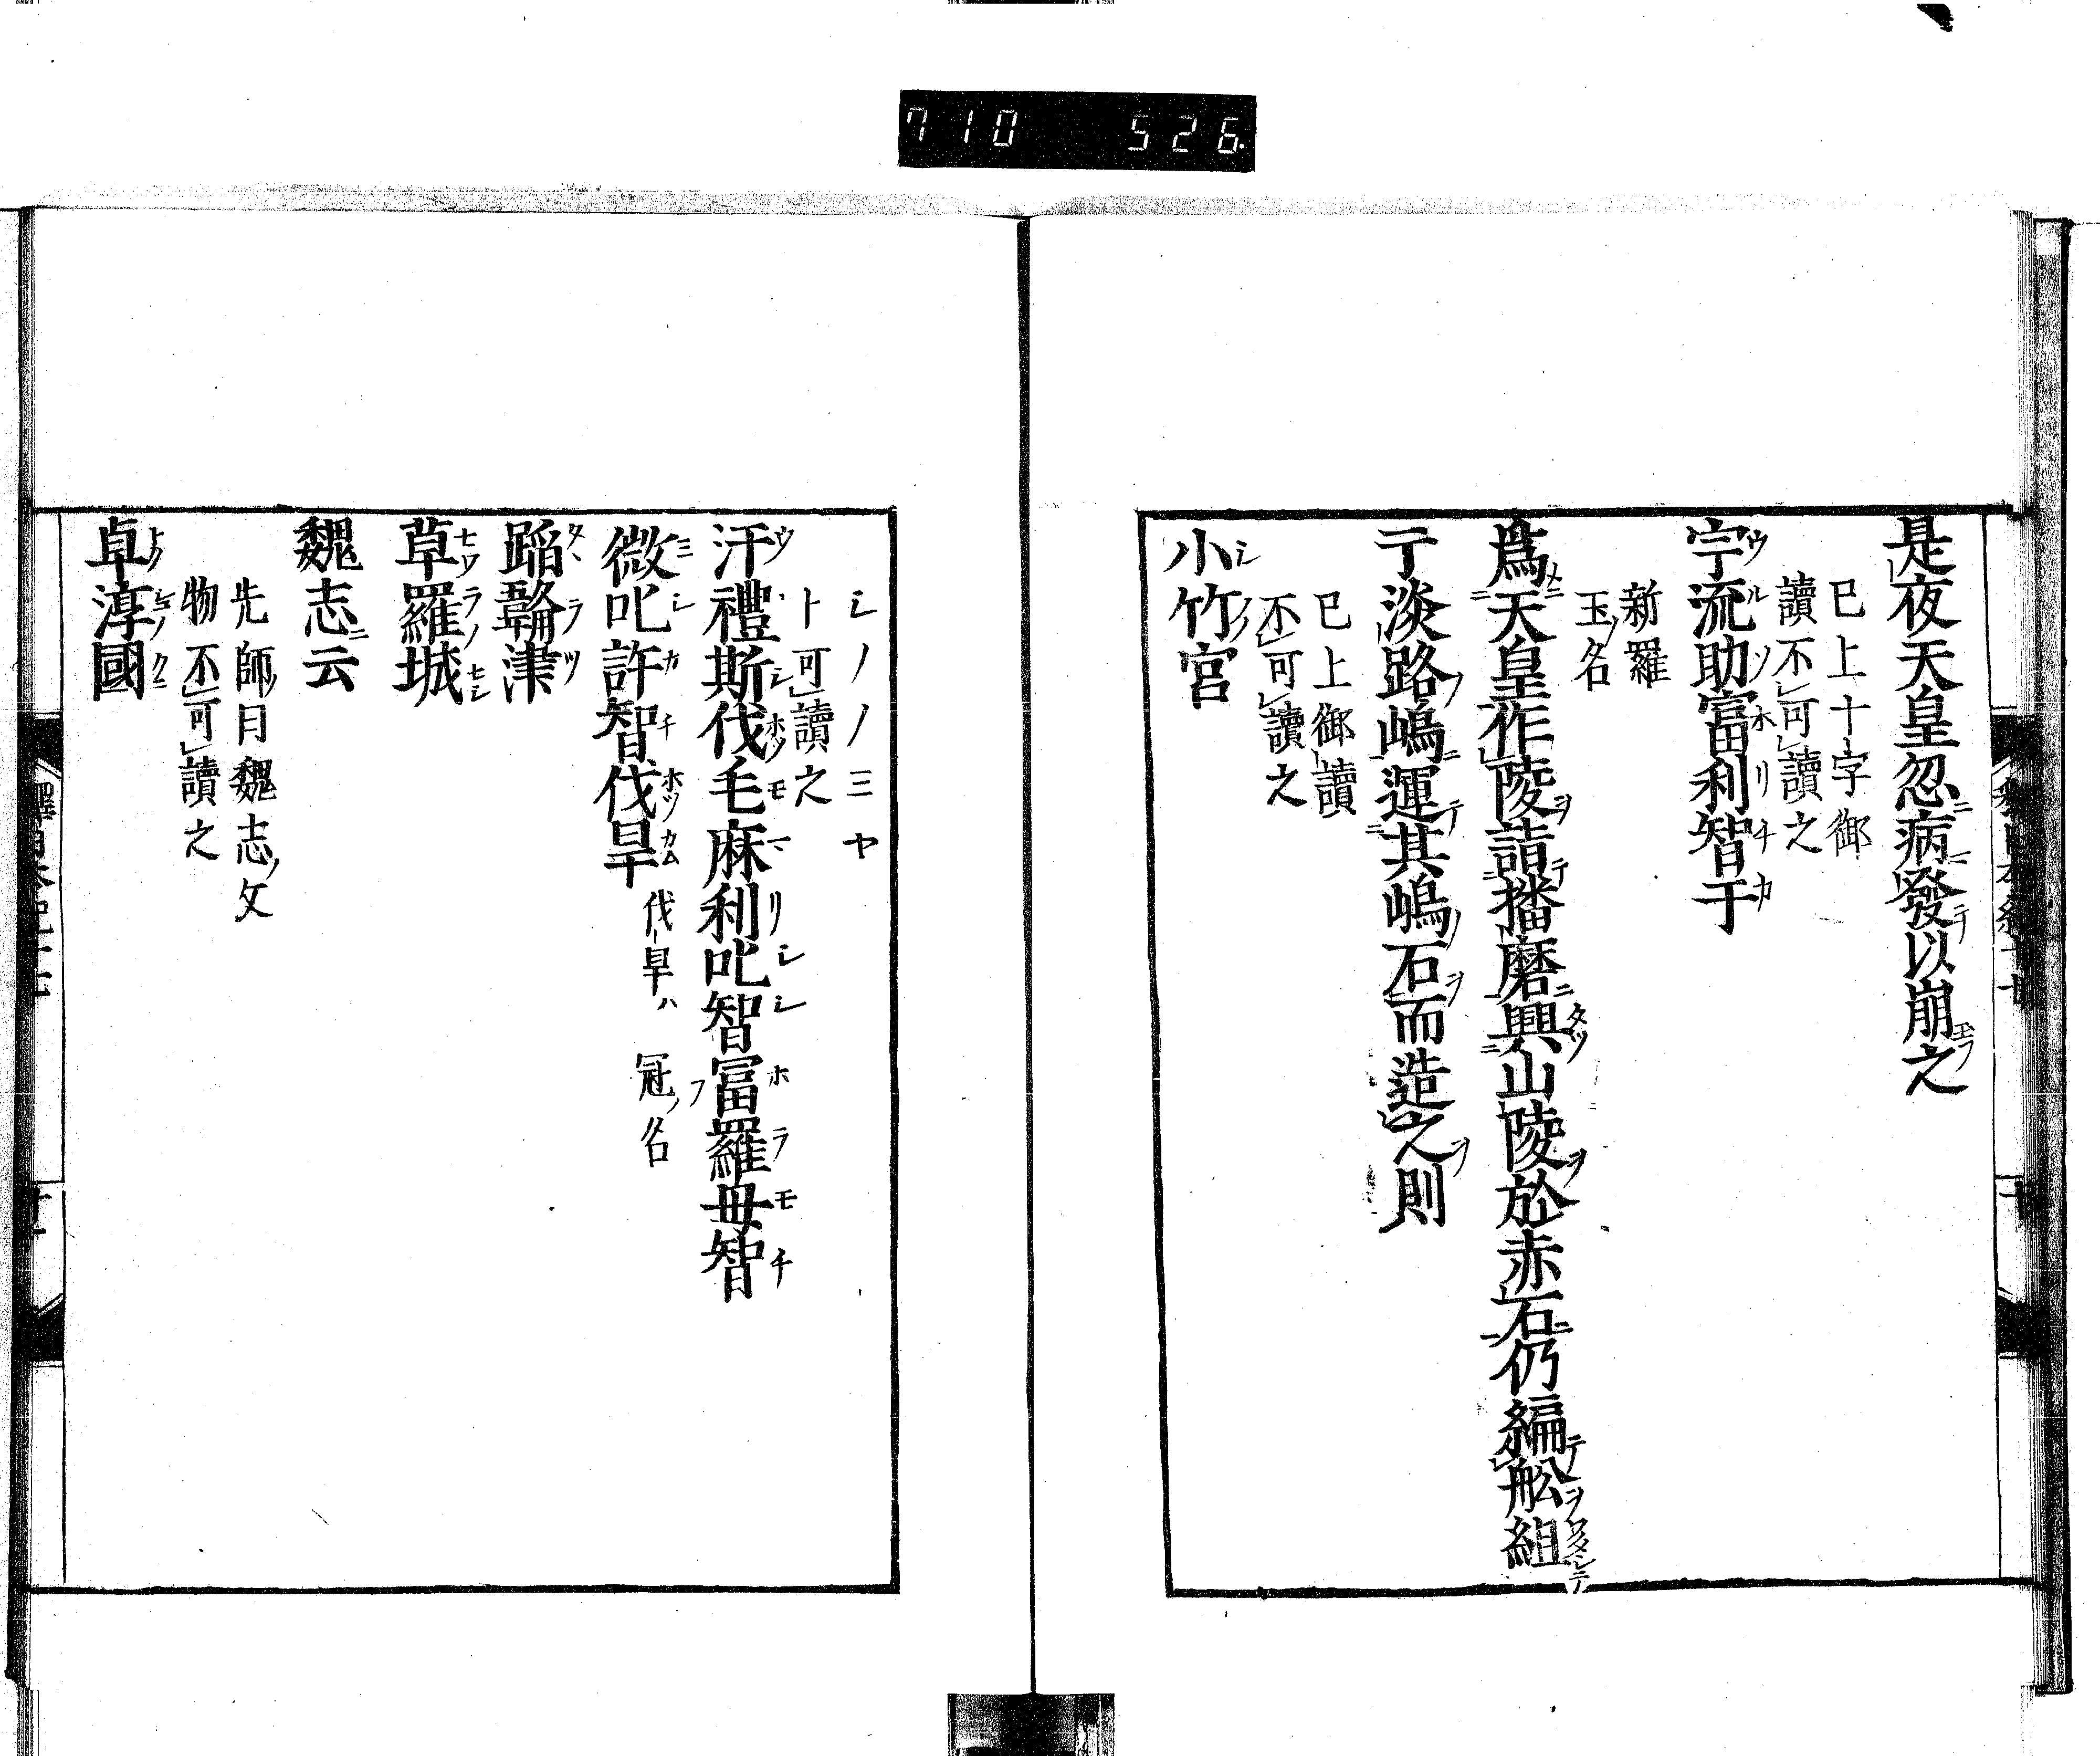 710 526
是夜天皇忽病發以崩之
已上十字御
讀不可讀之
宇流助富利智于
新羅
王名
爲天皇作陵詣播磨興山陵於赤石仍編舩組
于淡路嶋運其嶋石而造之則
已上御讀
不可讀之
小竹宮
シノノミヤ
ト可讀之
汙禮斯伐毛麻利叱智富羅母智
微叱許智伐旱 伐旱ハ冠ノ名
蹈鞴津
草羅城
魏志云
先師ノ目魏志ノ文
物不可讀之
卓淳國